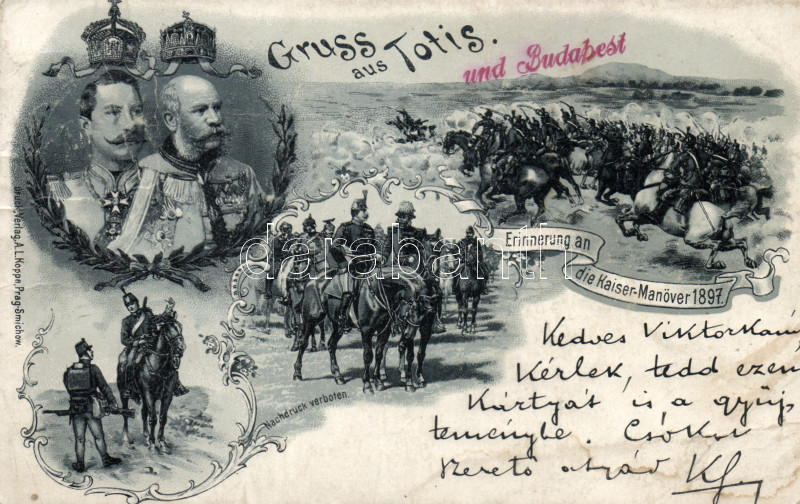 Gruss
aus Totis.
und Budapest
Erinnerung an
die Kaiser-Manöver 1897.
Druck u. Verlag A.L. Koppe, Prag-Smichow.
Nachdruck verboten.
darabanth
Kedves Viktorkám
Kérlek, tedd ezen
Kártyát is a gyüj
teménybe. Csókol
szerető atyád